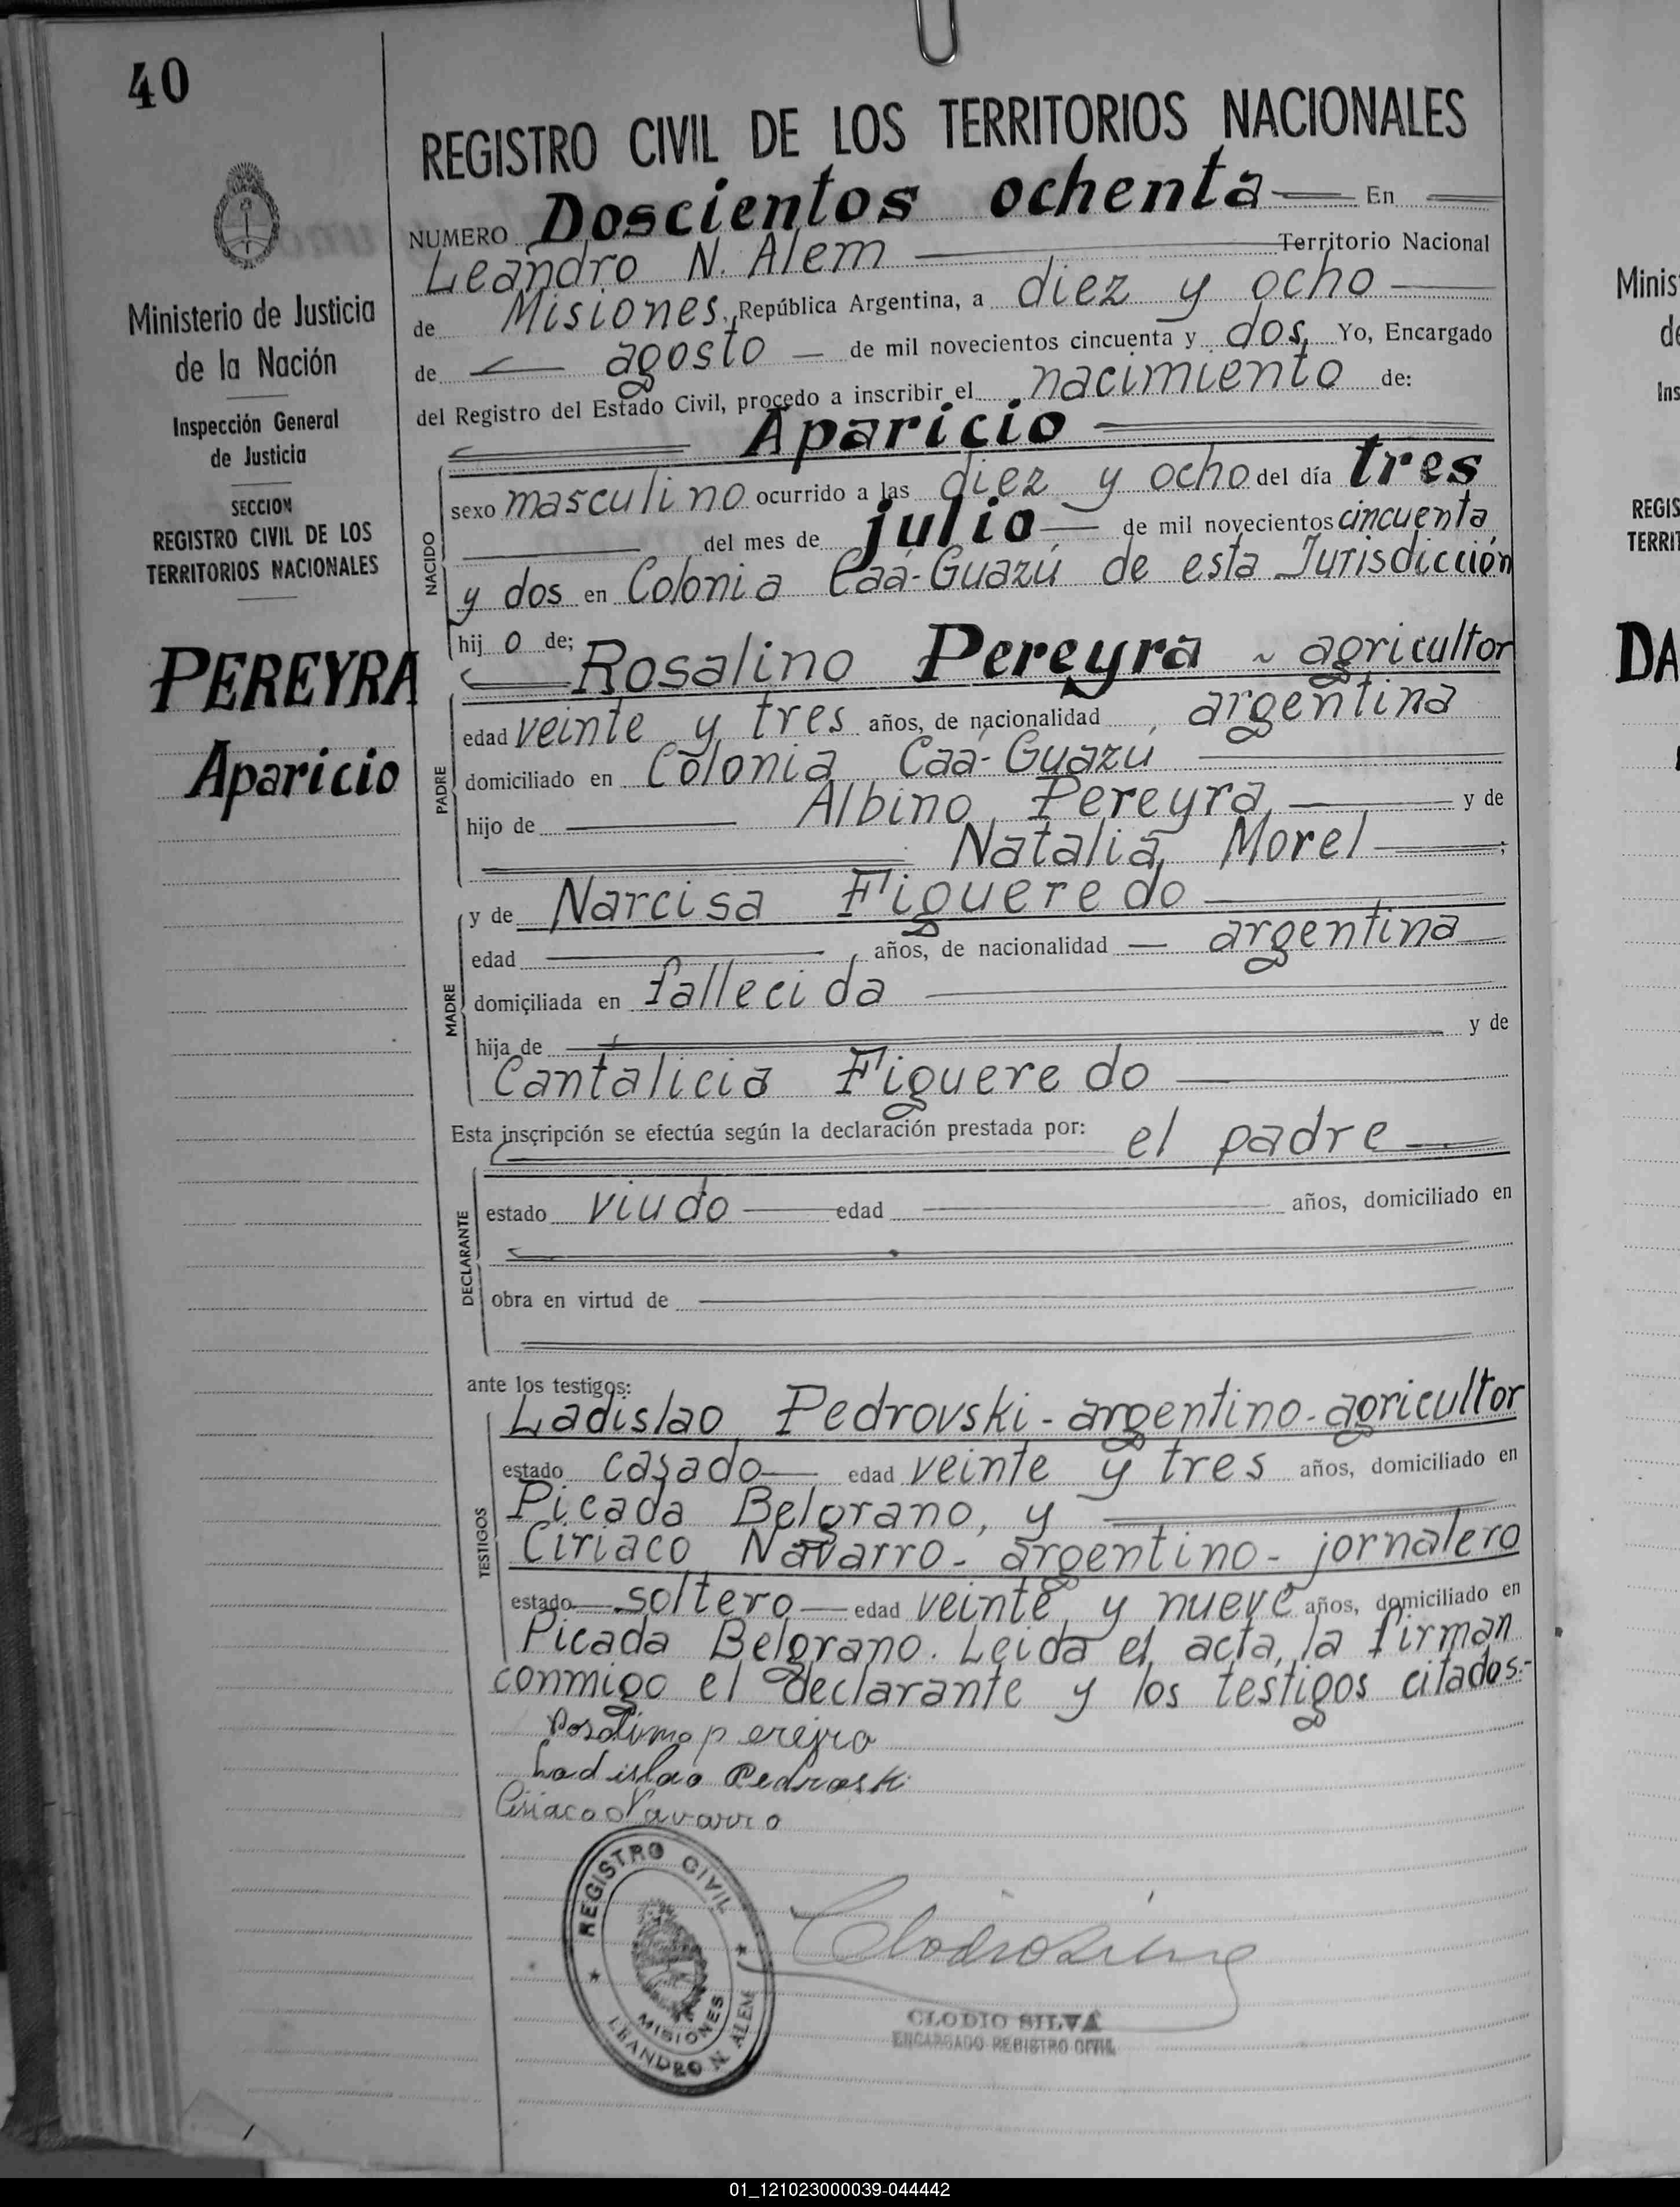 40
REGISTRO CIVIL DE LOS TERRITORIOS NACIONALES
NUMERO Doscientos ochenta En
Leandro N. Alem Territorio Nacional
de Misiones, República Argentina, a diez y ocho
de agosto de mil novecientos cincuenta y dos, Yo, Encargado
del Registro del Estado Civil, procedo a inscribir el nacimiento de:
Aparicio
sexo masculino ocurrido a las diez y ocho del día tres
del mes de julio de mil novecientos cincuenta
y dos en Colonia Caá-Guazú de esta Jurisdicción
hij o de;
Rosalino Pereyra ~ agricultor
edad veinte y tres años, de nacionalidad argentina
domiciliado en Colonia Caá-Guazú
hijo de Albino Pereyra y de
Natalia Morel ;
y de Narcisa Figueredo
edad años, de nacionalidad argentina
domiciliada en fallecida
hija de y de
Cantalicia Figueredo
Esta inscripción se efectúa según la declaración prestada por: el padre
estado viudo edad años, domiciliado en
obra en virtud de
ante los testigos:
Ladislao Pedrovski - argentino - agricultor
estado casado edad veinte y tres años, domiciliado en
Picada Belgrano, y
Ciriaco Navarro - argentino - jornalero
estado soltero edad veinte y nueve años, domiciliado en
Picada Belgrano. Leida el acta, la firman
conmigo el declarante y los testigos citados.-
Rosalimo perejra
Ladislao Pedroski
Ciriaco Navarro
NACIDO
PADRE
MADRE
DECLARANTE
TESTIGOS
Ministerio de Justicia
de la Nación
Inspección General
de Justicia
SECCION
REGISTRO CIVIL DE LOS
TERRITORIOS NACIONALES
PEREYRA
Aparicio
REGISTRO CIVIL
MISIONES
LEANDRO N. ALEM
CLODIO SILVA
ENCARGADO REGISTRO CIVIL
Minis
de
Ins
REGIS
TERRIT
DA
01_121023000039-044442